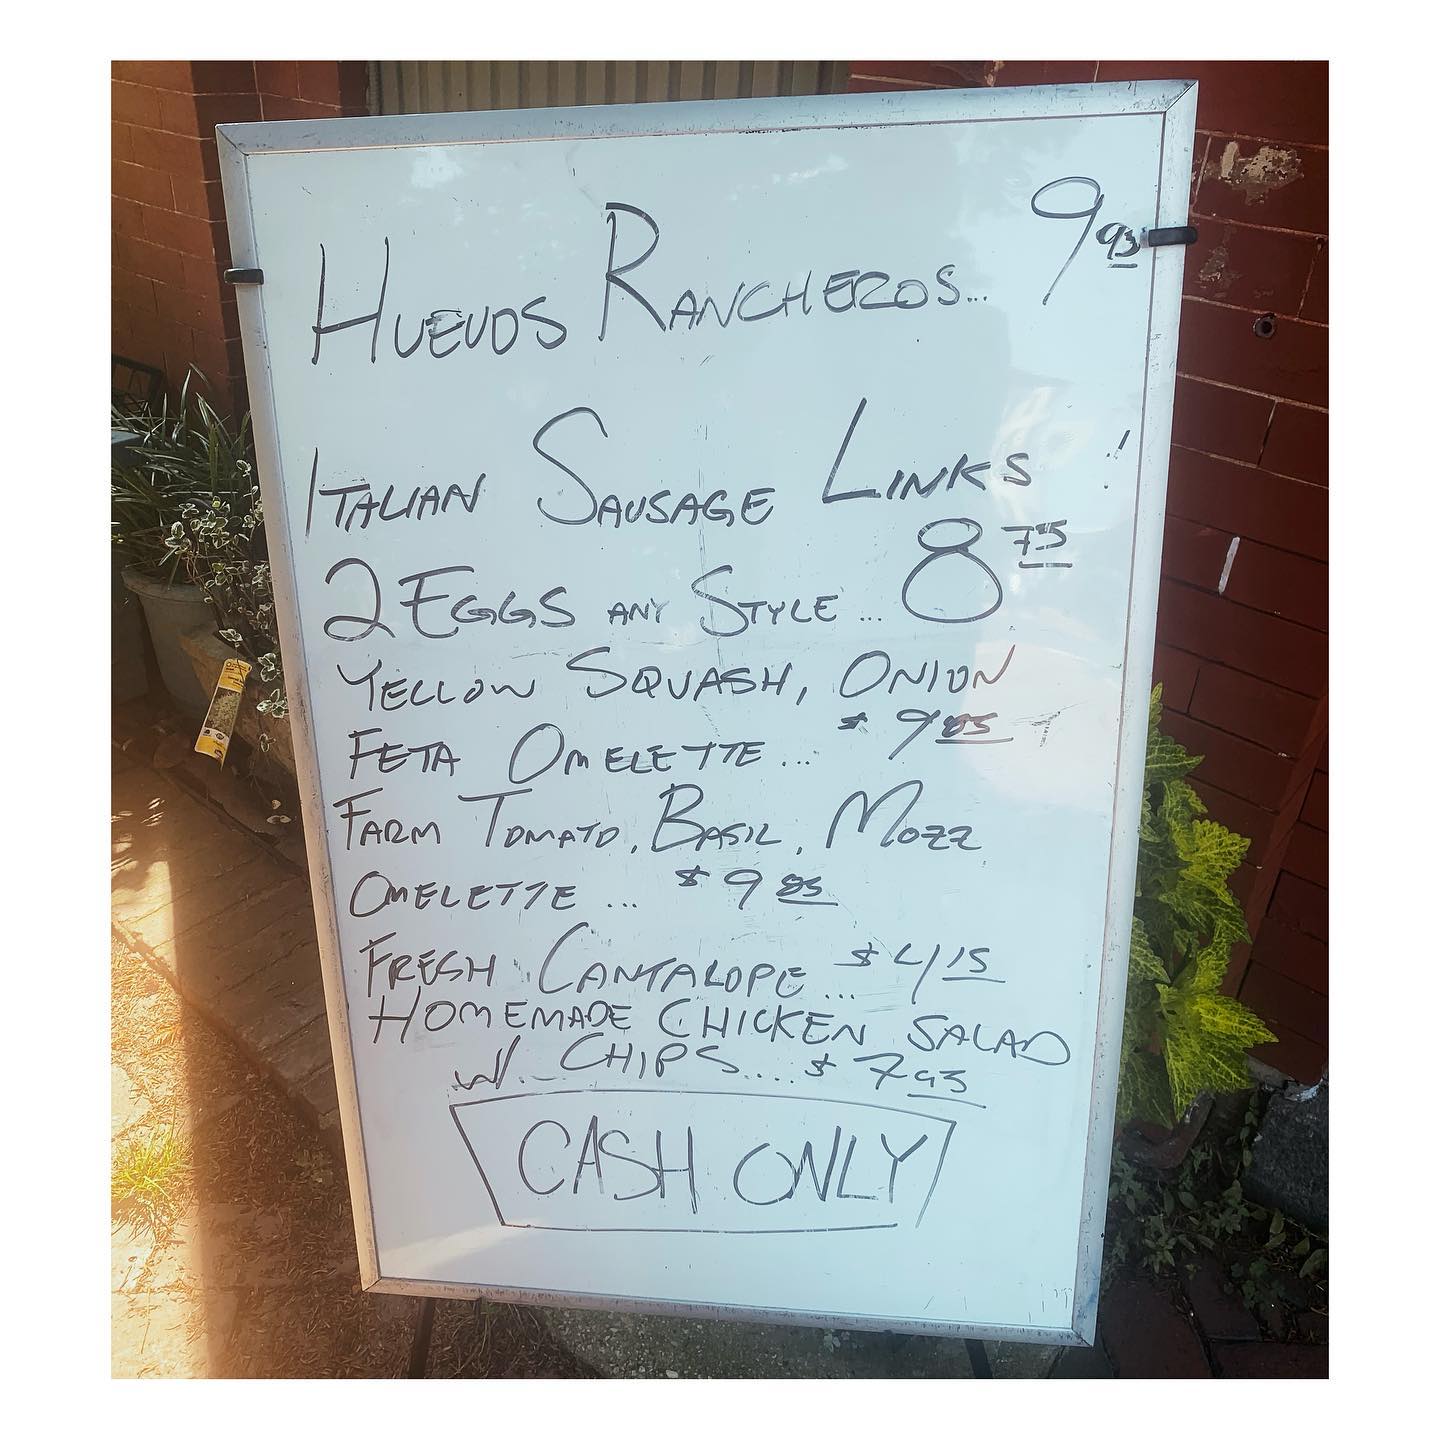 HUEVOS RANCHEROS... 9 95
ITALIAN SAUSAGE LINKS !
2 EGGS ANY STYLE... 8 75
YELLOW SQUASH, ONION
FETA OMELETTE... $9 85
FARM TOMATO, BASIL, MOZZ
OMELETTE... $9 85
FRESH CANTALOPE... $4 15
HOMEMADE CHICKEN SALAD
W/. CHIPS.... $7 95
CASH ONLY